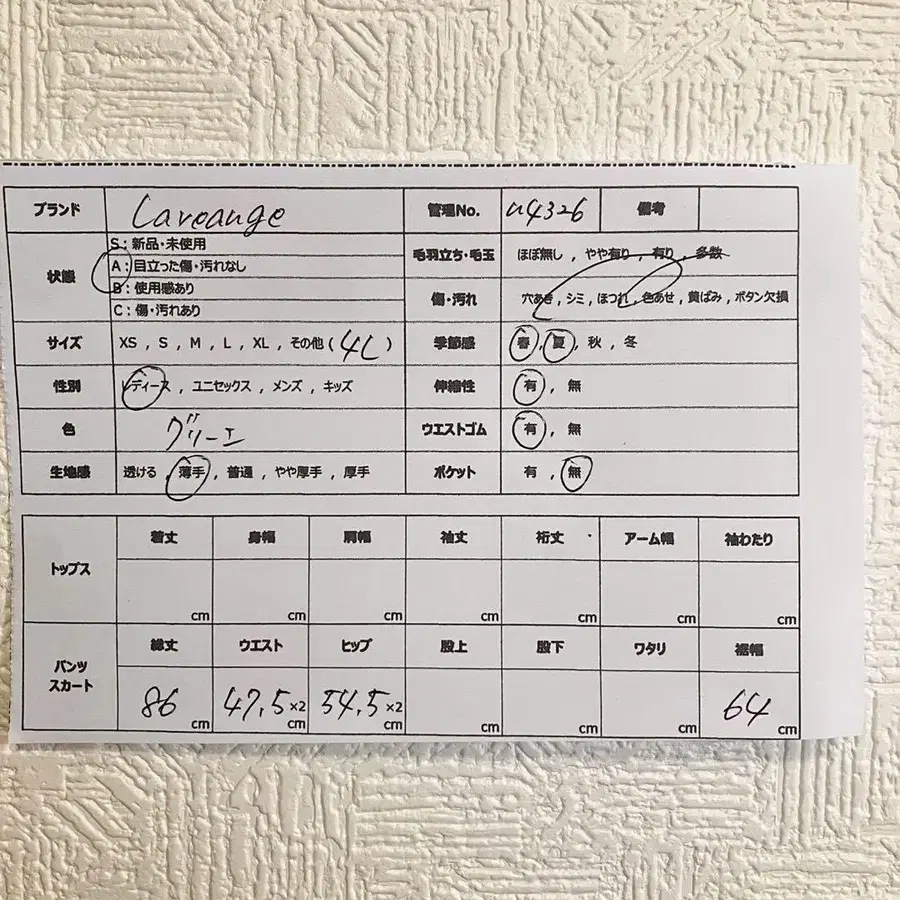 ブランド Laveange 管理No. u4326 備考
状態 S：新品・未使用
A：目立った傷・汚れなし
B：使用感あり
C：傷・汚れあり
毛羽立ち・毛玉 ほぼ無し , やや有り , 有り , 多数
傷・汚れ 穴あき , シミ , ほつれ , 色あせ , 黄ばみ , ボタン欠損
サイズ XS , S , M , L , XL , その他 ( 4L ) 季節感 春 , 夏 , 秋 , 冬
性別 レディース , ユニセックス , メンズ , キッズ 伸縮性 有 , 無
色 グリーン ウエストゴム 有 , 無
生地感 透ける , 薄手 , 普通 , やや厚手 , 厚手 ポケット 有 , 無
トップス 着丈 身幅 肩幅 袖丈 裄丈 アーム幅 袖わたり
cm cm cm cm cm cm cm
パンツ
スカート 総丈 ウエスト ヒップ 股上 股下 ワタリ 裾幅
86 cm 47.5×2 cm 54.5×2 cm cm cm cm 64 cm